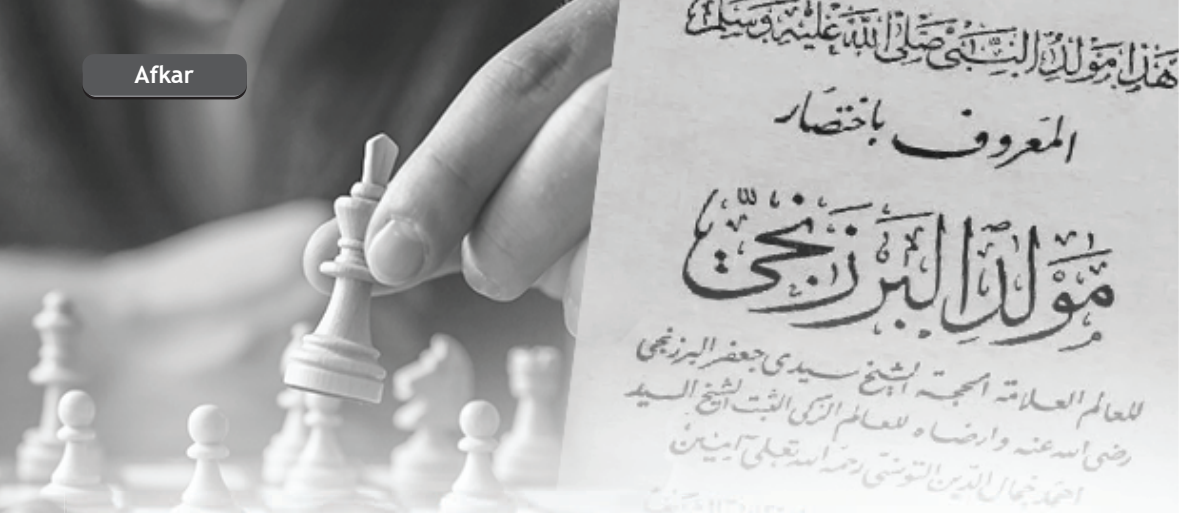 Afkar
هَذَا مَوْلِدُ النَّبِيِّ صَلَّى اللهُ عَلَيْهِ وَسَلَّمَ
المَعْرُوف بِاخْتِصَار
مَوْلِدُ البَرْزَنْجِيّ
للعالم العلامة الحجة الشيخ سيدى جعفر البرزنجى
رضى الله عنه وارضاه للعالم الزكى الثبت الشيخ السيد
احمد جمال الدين التونسى رحمه الله تعلى آمين